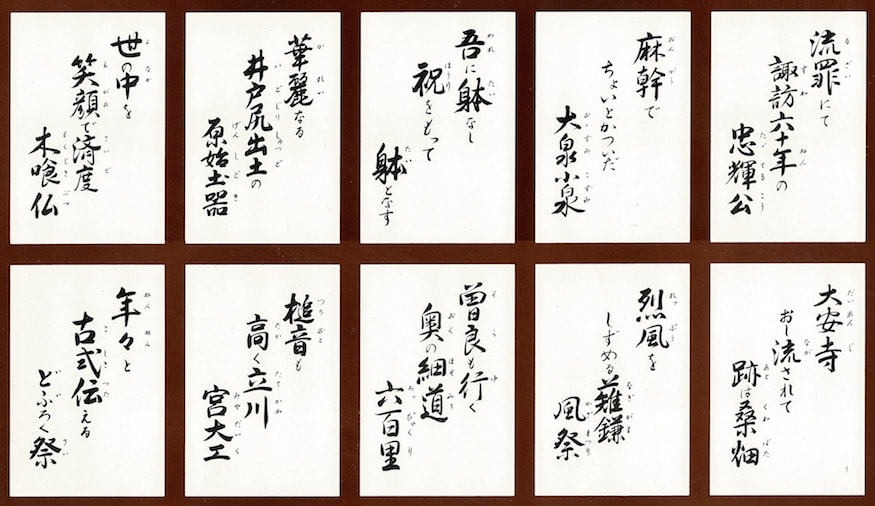 流罪にて
諏訪六十年の
忠輝公
麻幹で
ちょいとかついだ
大泉小泉
吾に躰なし
祝をもって
躰となす
華麗なる
井戸尻出土の
原始土器
世の中を
笑顔で済度
木喰仏
大安寺
おし流されて
跡は桑畑
烈風を
しずめる薙鎌
風祭
曽良も行く
奥の細道
六百里
槌音も
高く立川
宮大工
年々と
古式伝える
どぶろく祭